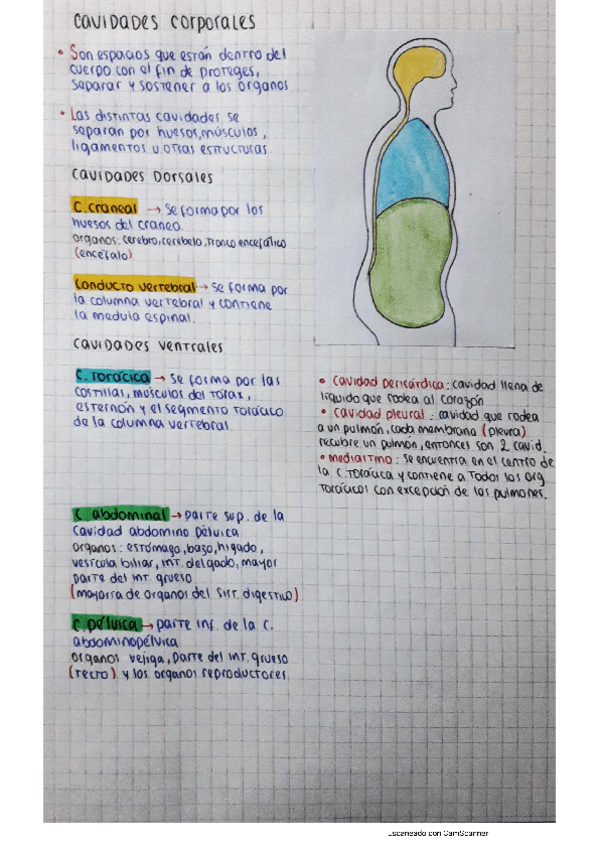 cavidades corporales
• Son espacios que están dentro del
cuerpo con el fin de proteges,
separar y sostener a los órganos
• Las distintas cavidades se
separan por huesos, músculos,
ligamentos u otras estructuras.
cavidades Dorsales
C. craneal → Se forma por los
huesos del craneo.
organos: cerebro, cerebelo, tronco encefálico
(encéfalo)
Conducto vertebral → se forma por
la columna vertebral y contiene
la medula espinal.
cavidades ventrales
C. Torácica → se forma por las
costillas, músculos del tórax,
esternón y el segmento torácico
de la columna vertebral.
• cavidad pericárdica: cavidad llena de
líquido que rodea al corazón
• cavidad pleural: cavidad que rodea
a un pulmón, cada membrana (pleura)
recubre un pulmón, entonces son 2 cavid.
• mediastino: se encuentra en el centro de
la C. Torácica y contiene a Todos los org
Torácicos con excepción de los pulmones.
C abdominal → parte sup. de la
cavidad abdomino pélvica
organos: estómago, bazo, higado,
vesícula biliar, int. delgado, mayor
parte del int. grueso
(mayorra de organos del sist. digestivo)
C pélvica → parte inf. de la C.
abdominopélvica
organos vejiga, parte del int. grueso
(recto) y los organos reproductores.
Escaneado con CamScanner